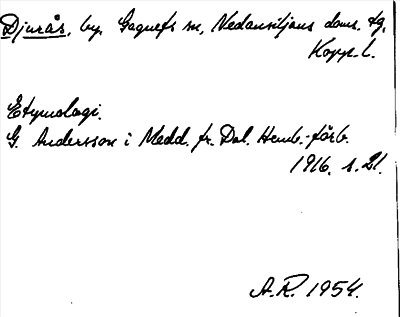 Djurås, by, Gagnefs sn, Nedansiljans doms. tg,
Kopp. l.
Etymologi.
G. Andersson i Medd. fr. Dal. Hemb.-förb.
1916. s. 21.
A.R. 1954.